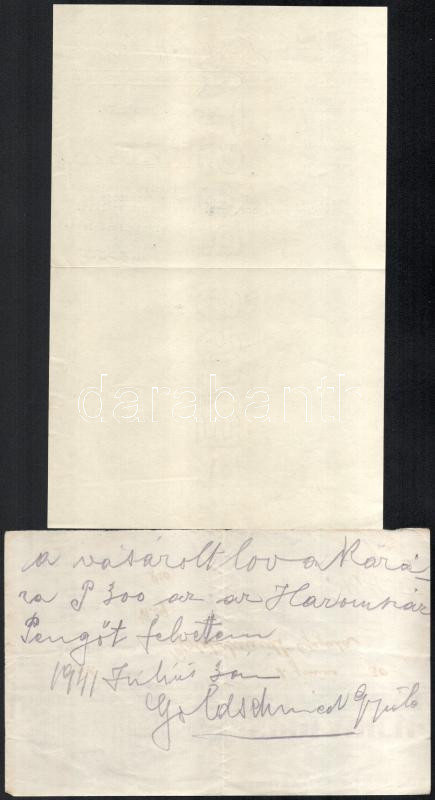 darabanth
a vásárolt lov a Kárá-
ra P 300 az az Háromszáz
Pengőt felvettem
1941 Július 3 an
Goldschmied Gyula